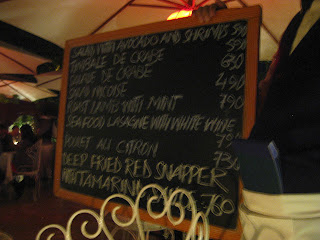 SALAD WITH AVOCADO AND SHRIMPS 590
TIMBALE DE CRABE 590
SOUFLE DE CRABE 830
SALAD NICOISE 450
ROAST LAMB WITH MINT 790
SEAFOOD LASAGNE WITH WHITE WINE
POULET AU CITRON 730
DEEP FRIED RED SNAPPER
WITH TAMARIND 760